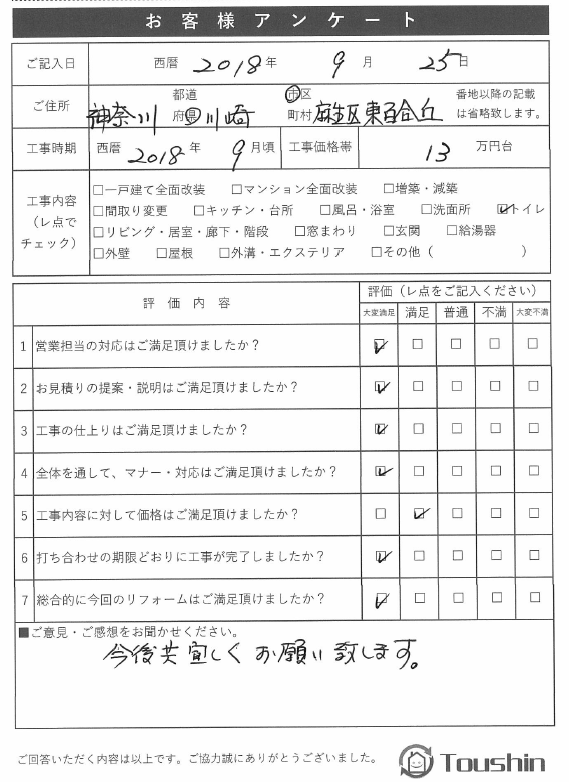 お客様アンケート
ご記入日 西暦 2018年 9月 25日
ご住所 神奈川 都道府県 川崎 市区町村 麻生区東百合丘 番地以降の記載は省略致します。
工事時期 西暦 2018年 9月頃 工事価格帯 13万円台
工事内容（レ点でチェック）
□一戸建て全面改装 □マンション全面改装 □増築・減築
□間取り変更 □キッチン・台所 □風呂・浴室 □洗面所 ☑トイレ
□リビング・居室・廊下・階段 □窓まわり □玄関 □給湯器
□外壁 □屋根 □外溝・エクステリア □その他（ ）
評価内容 評価（レ点をご記入ください）
大変満足 満足 普通 不満 大変不満
1 営業担当の対応はご満足頂けましたか？ ☑ □ □ □ □
2 お見積りの提案・説明はご満足頂けましたか？ ☑ □ □ □ □
3 工事の仕上りはご満足頂けましたか？ ☑ □ □ □ □
4 全体を通して、マナー・対応はご満足頂けましたか？ ☑ □ □ □ □
5 工事内容に対して価格はご満足頂けましたか？ □ ☑ □ □ □
6 打ち合わせの期限どおりに工事が完了しましたか？ ☑ □ □ □ □
7 総合的に今回のリフォームはご満足頂けましたか？ ☑ □ □ □ □
■ご意見・ご感想をお聞かせください。
今後共宜しくお願い致します。
ご回答いただく内容は以上です。ご協力誠にありがとうございました。
Toushin